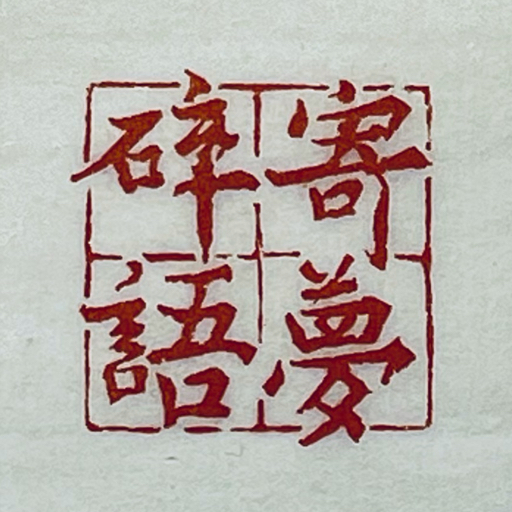 寄夢
碎語